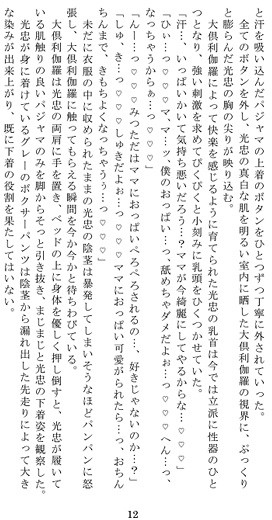 と汗を吸い込んだパジャマの上着のボタンをひとつずつ丁寧に外されていった。
全てのボタンを外し、光忠の真白な肌を明るい室内に晒した大倶利伽羅の視界に、ぷっくり
と膨らんだ光忠の胸の尖りが映り込む。
大倶利伽羅によって快楽を感じるように育てられた光忠の乳首は今では立派に性器のひと
つとなり、強い刺激を求めてぴくぴくと小刻みに乳頭をひくつかせていた。
「汗…、いっぱいかいて気持ち悪いだろう…？ママが今綺麗にしてやるからな…♡♡♡」
「ひぃ…っ♡♡♡マ、ママ…ッ、僕のおっぱい…っ、舐めちゃダメだよぉ…っ♡♡♡へん…っ、
なっちゃうからぁ…っ♡♡♡」
「んー…っ♡♡♡みっただはママにおっぱいぺろぺろされるの…、好きじゃないのか…？」
「しゅ、き…っ♡♡♡しゅきだよぉ…っ♡♡♡ママにおっぱい可愛がられたら…っ、おちん
ちんまで、きもちよくなっちゃうぅ…っ♡♡♡」
未だに衣服の中に収められたままの光忠の陰茎は暴発してしまいそうなほどパンパンに怒
張し、大倶利伽羅に触ってもらえる瞬間を今か今かと待ちわびている。
大倶利伽羅は光忠の両肩に手を置き、ベッドの上に身体を優しく押し倒すと、光忠が履いて
いる肌触りの良いパジャマのみを脚からそっと引き抜き、まじまじと光忠の下着姿を観察した。
光忠が身に着けているグレーのボクサーパンツは陰茎から漏れ出した先走りによって大き
な染みが出来上がり、既に下着の役割を果たしてはいない。
12